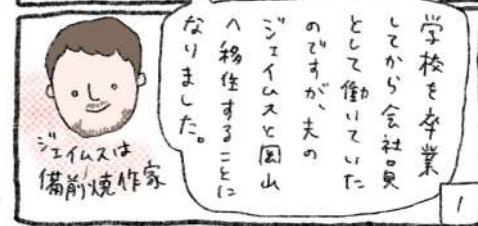 学校を卒業
してから会社員
として働いていた
のですが、夫の
ジェイムスと岡山
へ移住することに
なりました。
ジェイムスは
備前焼作家
1